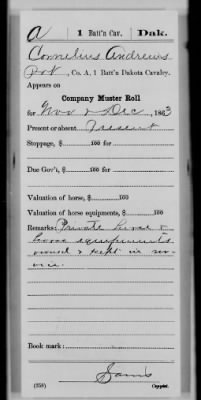 A | 1 Batt'n Cav. | Dak.
Cornelius Andrews
Pvt, Co. A, 1 Batt'n Dakota Cavalry.
Appears on
Company Muster Roll
for Nov & Dec, 1863
Present or absent Present
Stoppage, $ 100 for
Due Gov't, $ 100 for
Valuation of horse, $ 100
Valuation of horse equipments, $ 100
Remarks: Private horse &
horse equipments
owned & kept in ser-
vice.
Book mark:
(358)
Copyist.